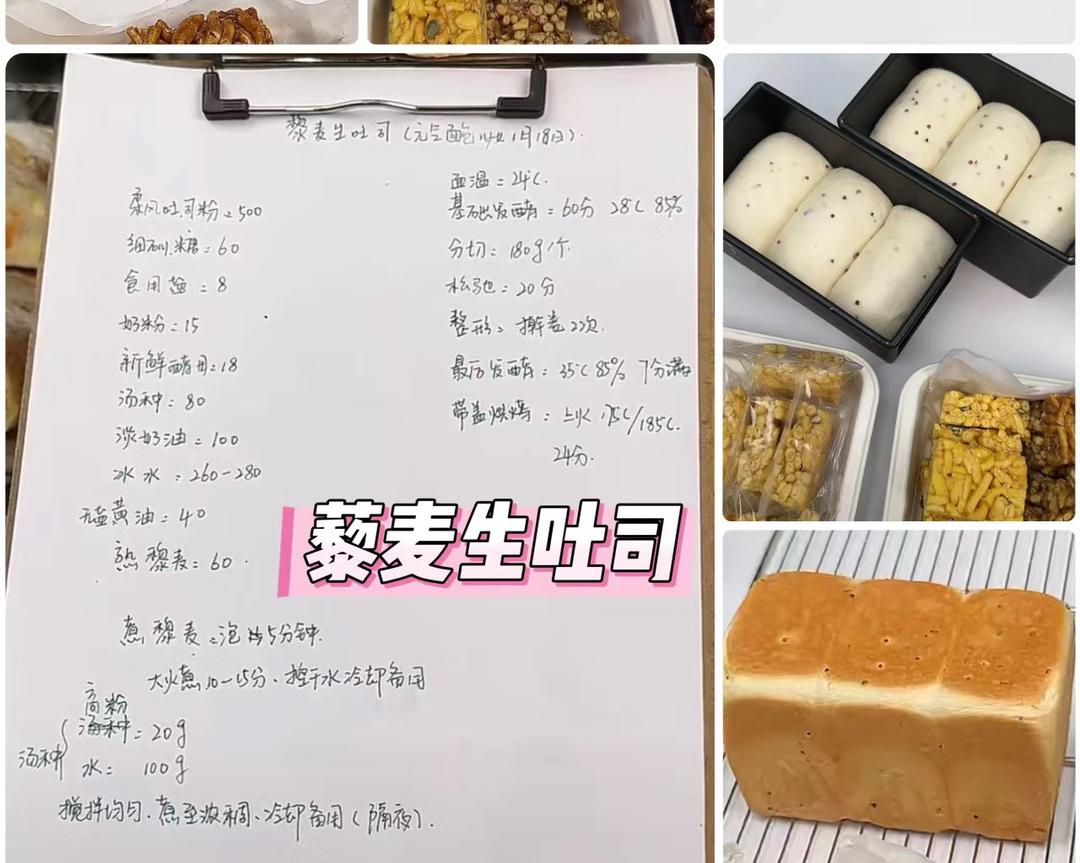 藜麦生吐司(元气面包 1月18日).
柔风吐司粉=500
细砂糖=60
食用盐=8
奶粉=15
新鲜酵母=18
汤种=80
淡奶油=100
冰水=260-280
无盐黄油=40
熟藜麦=60.
煮藜麦=泡15分钟.
大火煮10-15分、控干水冷却备用
汤种
高粉
汤种=20g
水=100g
搅拌均匀.煮至浓稠、冷却备用(隔夜).
面温=24℃.
基础发酵=60分 28℃ 85%
分切=180g/个
松弛=20分
整形=擀卷2次.
最后发酵=35℃ 85% 7分满
带盖烘烤=上火175℃/185℃.
24分.
藜麦生吐司